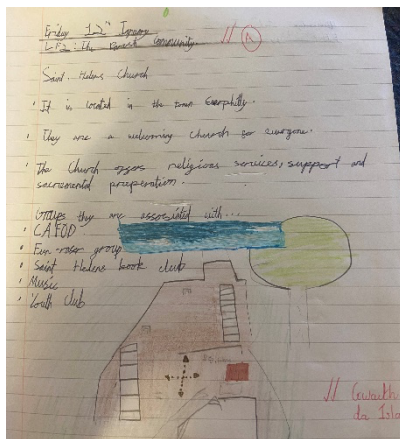 Friday 12th January
LF2: The Parish Community.
// A
Saint Helens Church
• It is located in the town Caerphilly.
• They are a welcoming church for everyone.
• The Church offers religious services, support and
sacramental preperation.
Groups they are associated with...
• CAFOD
• Fun-raser group
• Saint Helens book club
• Music
• Youth club
// Gwaith
da Isla